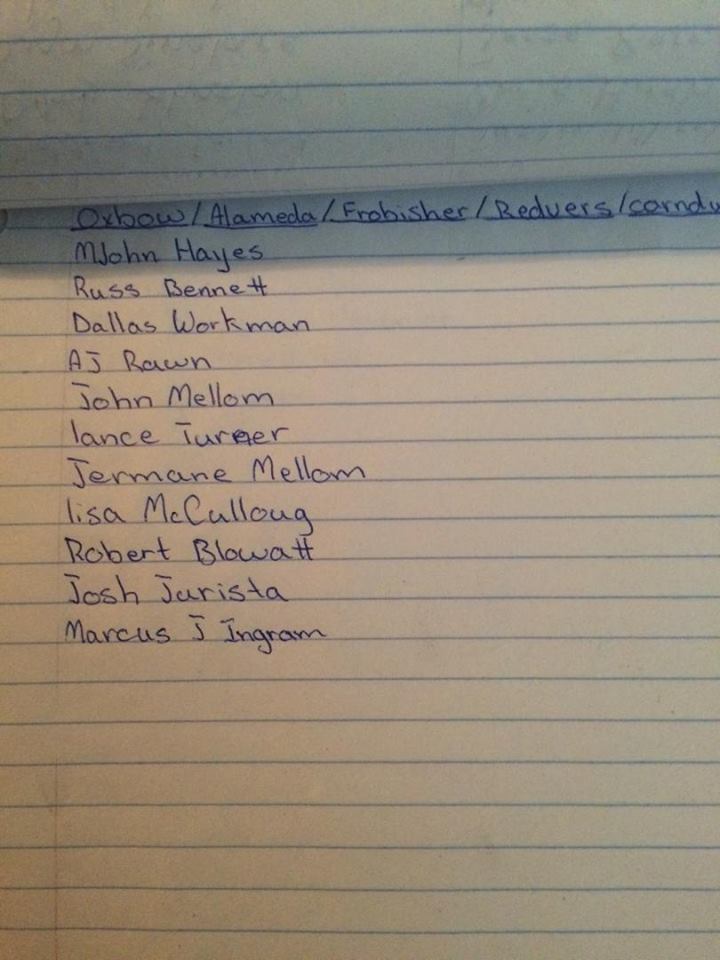 Oxbow/Alameda/Frobisher/Redvers/carndu
MJohn Hayes
Russ Bennett
Dallas Workman
AJ Rawn
John Mellom
lance Turner
Jermane Mellom
lisa McCulloug
Robert Blowatt
Josh Jurista
Marcus J Ingram